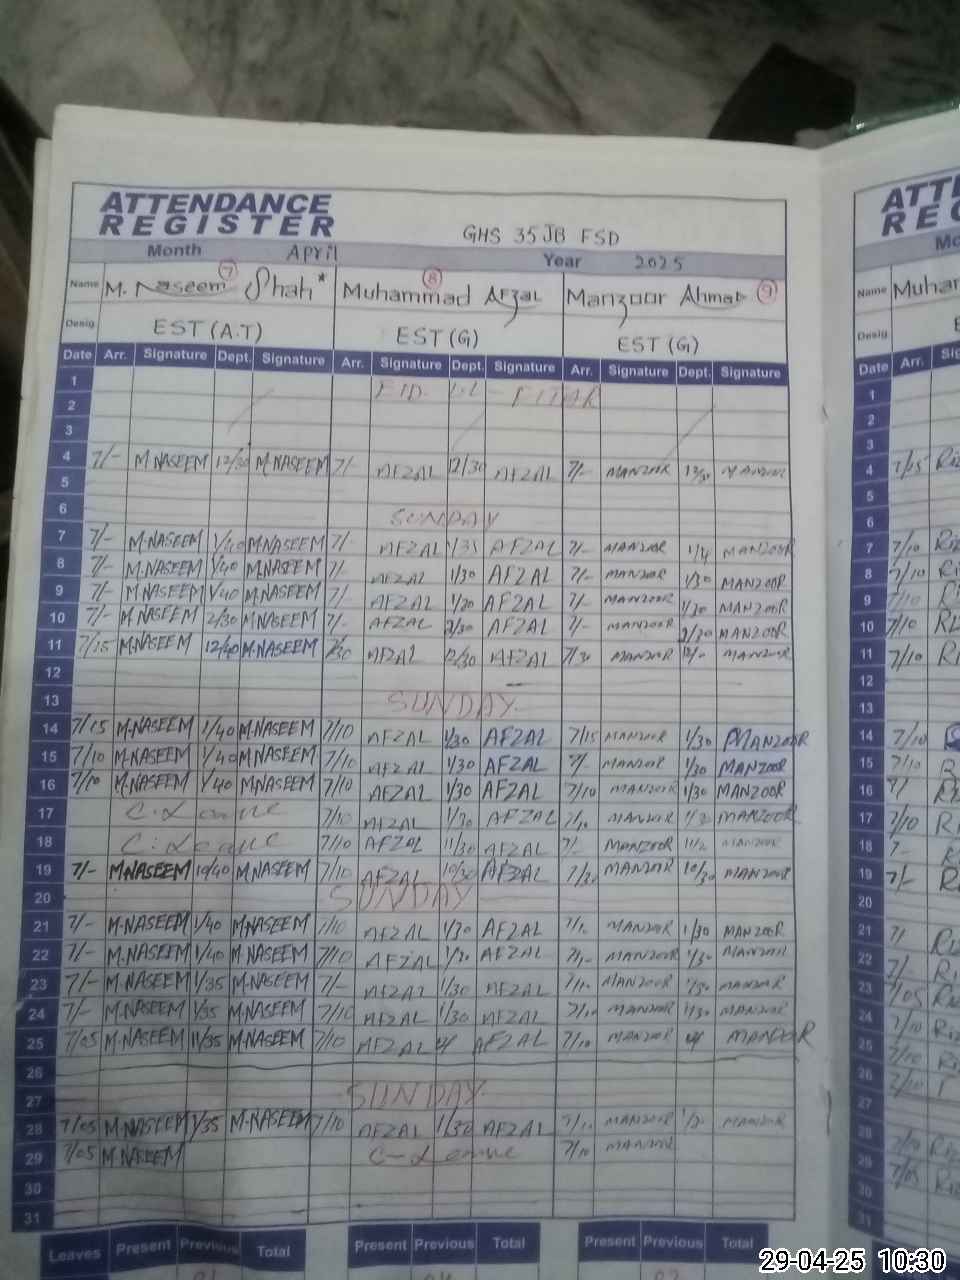 ATTENDANCE
REGISTER
GHS 35JB FSD
Month April Year 2025
Name M. Naseem Shah* 7 Muhammad Afzal 8 Manzoor Ahmad 9
Desig. EST (A.T) EST (G) EST (G)
Date Arr. Signature Dept. Signature Arr. Signature Dept. Signature Arr. Signature Dept. Signature
1 EID UL-FITAR
2
3
4 7/- M.NASEEM 12/30 M.NASEEM 7/- AFZAL 12/30 AFZAL 7/- MANZOOR 12/30 MANZOOR
5
6 SUNDAY
7 7/- M.NASEEM 1/40 M.NASEEM 7/- AFZAL 1/35 AFZAL 7/- MANZOOR MANZOOR
8 7/- M.NASEEM 1/40 M.NASEEM 7/- AFZAL 1/30 AFZAL 7/- MANZOOR 1/30 MANZOOR
9 7/- M.NASEEM 1/40 M.NASEEM 7/- AFZAL 1/30 AFZAL 7/- MANZOOR 1/30 MANZOOR
10 7/- M.NASEEM 2/30 M.NASEEM 7/- AFZAL 2/30 AFZAL 7/- MANZOOR 2/30 MANZOOR
11 7/15 M.NASEEM 12/40 M.NASEEM 7/30 AFZAL 12/30 AFZAL 7/30 MANZOOR 12/- MANZOOR
12
13 SUNDAY
14 7/15 M.NASEEM 1/40 M.NASEEM 7/10 AFZAL 1/30 AFZAL 7/15 MANZOOR 1/30 MANZOOR
15 7/10 M.NASEEM 1/40 M.NASEEM 7/10 AFZAL 1/30 AFZAL 7/- MANZOOR 1/30 MANZOOR
16 7/10 M.NASEEM 1/40 M.NASEEM 7/10 AFZAL 1/30 AFZAL 7/10 MANZOOR 1/30 MANZOOR
17 C.Leave 7/10 AFZAL 1/30 AFZAL 7/10 MANZOOR 1/30 MANZOOR
18 C.Leave 7/10 AFZAL 11/30 AFZAL 7/- MANZOOR MANZOOR
19 7/- M.NASEEM 10/40 M.NASEEM 7/10 AFZAL 10/30 AFZAL 7/30 MANZOOR 10/30 MANZOOR
20 SUNDAY
21 7/- M.NASEEM 1/40 M.NASEEM 7/10 AFZAL 1/30 AFZAL 7/10 MANZOOR 1/30 MANZOOR
22 7/- M.NASEEM 1/40 M.NASEEM 7/10 AFZAL 1/30 AFZAL 7/10 MANZOOR 1/30 MANZOOR
23 7/- M.NASEEM 1/35 M.NASEEM 7/- AFZAL 1/30 AFZAL 7/10 MANZOOR 1/30 MANZOOR
24 7/- M.NASEEM 1/35 M.NASEEM 7/10 AFZAL 1/30 AFZAL 7/10 MANZOOR 1/30 MANZOOR
25 7/05 M.NASEEM 11/35 M.NASEEM 7/10 AFZAL AFZAL 7/10 MANZOOR MANZOOR
26
27 SUNDAY
28 7/05 M.NASEEM 1/35 M.NASEEM 7/10 AFZAL 1/30 AFZAL 7/10 MANZOOR MANZOOR
29 7/05 M.NASEEM C-Leave 7/10 MANZOOR
30
31
Leaves Present Previous Total Present Previous Total Present Previous Total
Name Muha
Desig.
Date Arr.
1
2
3
4 7/05
5
6
7 7/10
8 7/10
9 7/10
10 7/10
11 7/10
12
13
14 7/10
15 7/10
16
17 7/10
18 7-
19 7/-
20
21
22 7/-
23 7/05
24 7/10
25 7/10
26 7/10
27
28 7/10
29 7/05
30
31
29-04-25 10:30